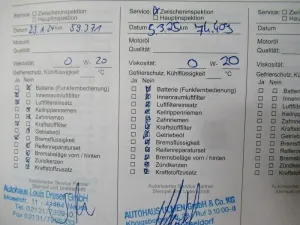 Zwischeninspektion
Hauptinspektion
Datum 59.371
Motoröl
Qualität:
Viskosität: 0 W- 20
Gefrierschutz, Kühlflüssigkeit °C
Ja Nein
Batterie (Funkfernbedienung)
Innenraumluftfilter
Luftfiltereinsatz
Keilrippenriemen
Zahnriemen
Kraftstofffilter
Getriebeöl
Bremsflüssigkeit
Reifenreparaturset
Bremsbeläge vorn / hinten
Zündkerzen
Kraftstoffzusatz
Autorisierter Service Partner
Stempel und Unterschrift
Autohaus Louis Dresen GmbH
Service: Zwischeninspektion
Hauptinspektion
Datum 5.3.25 km 74.409
Motoröl
Qualität:
Viskosität: 0 W- 20
Gefrierschutz, Kühlflüssigkeit °C
Ja Nein
Batterie (Funkfernbedienung)
Innenraumluftfilter
Luftfiltereinsatz
Keilrippenriemen
Zahnriemen
Kraftstofffilter
Getriebeöl
Bremsflüssigkeit
Reifenreparaturset
Bremsbeläge vorn / hinten
Zündkerzen
Kraftstoffzusatz
Autorisierter Service Partner
Stempel und Unterschrift
AUTOHAUS GmbH & Co. KG
Service:
Datum
Motoröl
Qualität:
Viskosität:
Gefrierschutz
Ja Nein